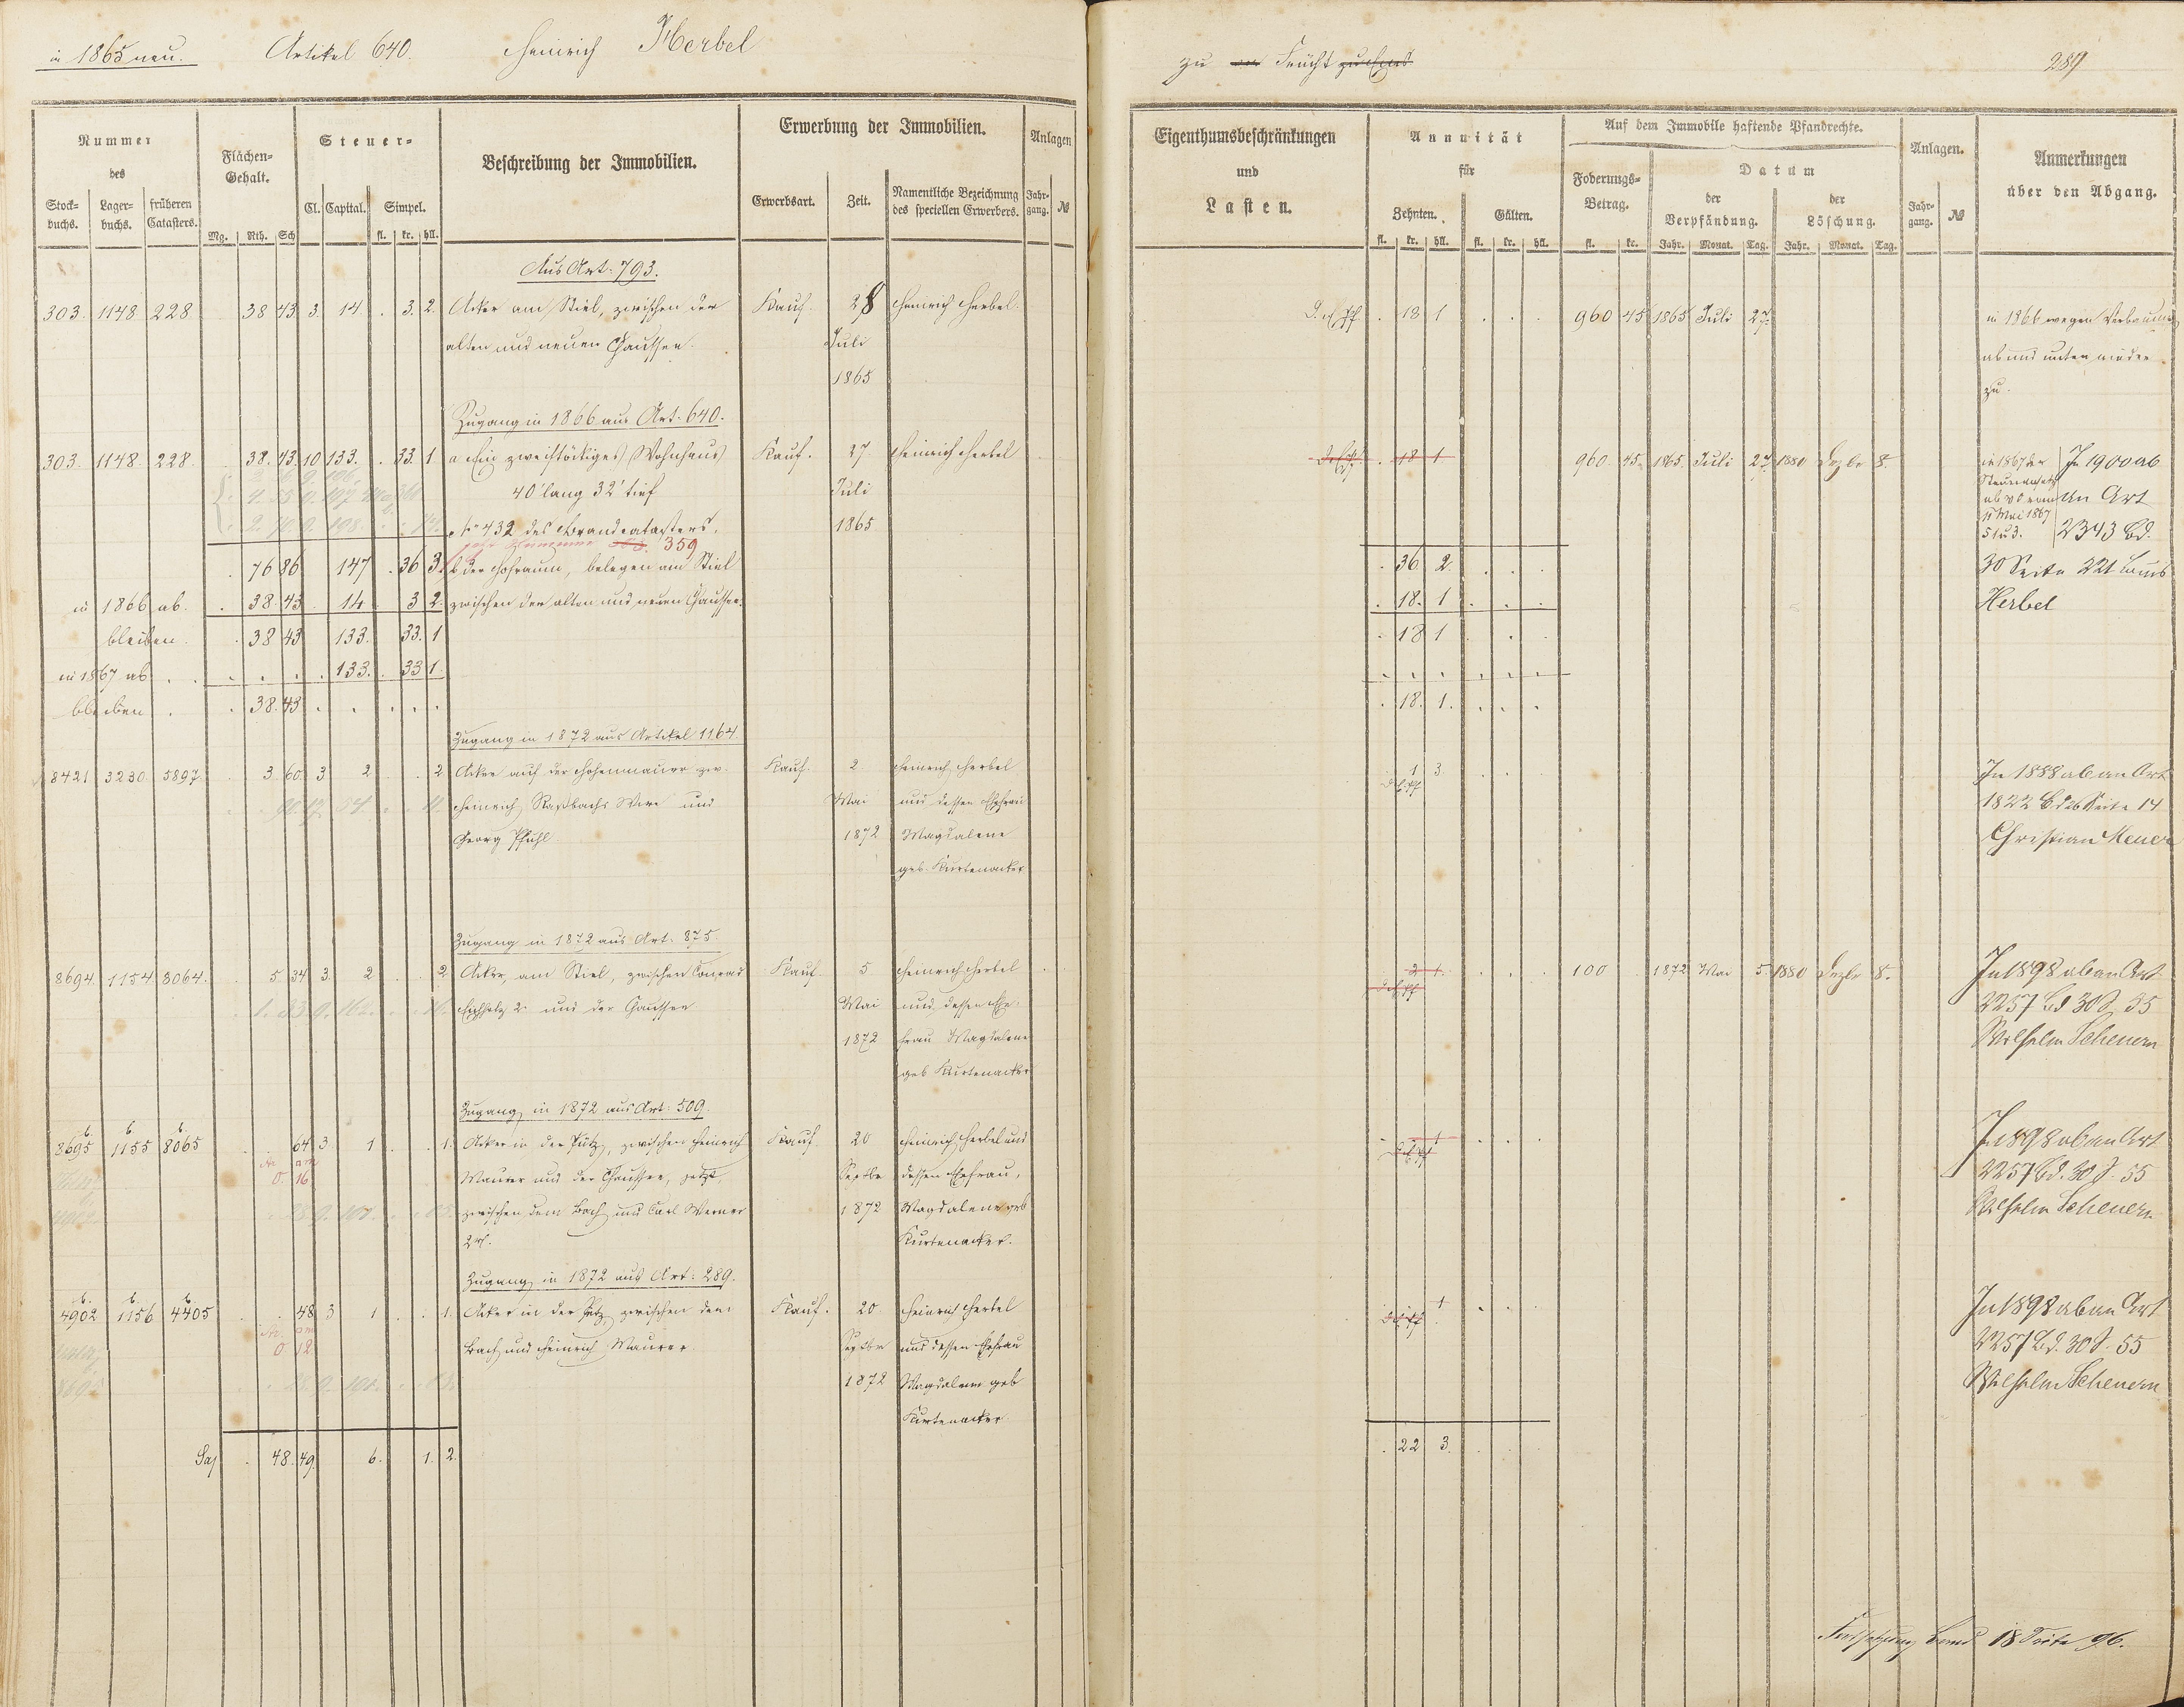 in 1865 neu. Artikel 640. Heinrich Herbel
Nummer des
Stock-buchs. Lager-buchs. früheren Catasters.
Flächen-Gehalt.
Mg. Rth. Sch
Steuer-
Cl. Capital. Simpel.
fl. kr. hll.
Beschreibung der Immobilien.
Erwerbung der Immobilien.
Erwerbsart. Zeit. Namentliche Bezeichnung des speciellen Erwerbers.
Anlagen
Jahr-gang. №
Aus Art. 793.
303. 1148 228 38 43 3. 14. . 3. 2. Acker am Stiel, zwischen der Kauf. 28 Heinrich Herbel.
alten und neuen Chaussee. Juli
1865
Zugang in 1866 aus Art. 640.
303. 1148. 228. 38. 43. 10 133. . 33. 1 a Ein zweistöckiges Wohnhaus Kauf. 27. Heinrich Herbel
40' lang 32' tief Juli
432 des Brandcatasters. 1865
359
. 76 86 147 . 36 3. b der Hofraum, belegen am Stiel
in 1866 ab. . 38. 43 14 3 2. zwischen der alten und neuen Chaussee.
bleiben. . 38 43 133. 33. 1
in 1867 ab . . . . . . 133. . 33 1.
bleiben . . 38. 43 . . . . .
Zugang in 1872 aus Artikel 1164
8421 3230. 5897. 3. 60. 3. 2 . . 2. Acker auf der Hohenmauer zw. Kauf. 2 Heinrich Herbel
Heinrich Raßbachs Wwe und Mai und dessen Ehefrau
Georg Pfuhl. 1872 Magdalene
geb. Kurtenacker
Zugang in 1872 aus Art. 875.
8694. 1154 8064. 5. 34 3. 2 . 2. Acker, am Stiel, zwischen Conrad Kauf. 5 Heinrich Herbel
Eichholz 2r und der Chaussee Mai und dessen Ehe-
1872 frau Magdalene
geb Kurtenacker
Zugang in 1872 aus Art. 509.
8695 1155 8065 64 3 1 . 1. Acker in der Pütz, zwischen Heinrich Kauf. 20 Heinrich Herbel und
0. 16 Maurer und der Chaussee, jetzt, Septbr dessen Ehefrau,
zwischen dem Bach und Carl Werner 1872 Magdalene geb
2r. Kurtenacker.
Zugang in 1872 aus Art: 289.
4902 1156 4405 48 3 1 . . 1. Acker in der Pütz, zwischen dem Kauf. 20. Heinrich Herbel
0 12 Bach und Heinrich Maurer. Septbr und dessen Ehefrau
1872 Magdalene geb
Kurtenacker
Sa . 48. 49. 6. 1. 2.
zu Frücht 289
Eigenthumsbeschränkungen und Lasten.
Annuität für
Zehnten. Gülten.
fl. kr. hll. fl. kr. hll.
Auf dem Immobile haftende Pfandrechte.
Foderungs-Betrag.
fl. kr.
Datum
der Verpfändung. der Löschung.
Jahr. Monat. Tag. Jahr. Monat. Tag.
Anlagen.
Jahr-gang. №
Anmerkungen über den Abgang.
. 18 1 . . . 960 45 1865 Juli 27. in 1866 wegen Verbauung
ab und unten wieder
zu.
. 18 1. 960. 45. 1865. Juli 27. 1880 Dezbr 8. in 1867 der In 1900 ab
an Art
Mai 1867
2343 Bd.
. 36 2. . . . 30 Seite 221 Louis
. 18. 1 . . . Herbel
. 18 1 . .
. . . . . .
. 18. 1. . . .
1 3 . . . In 1888 ab an Art
1822 Bd 26 Seite 14
Christian Meuer
2 1. . . . 100 1872 Mai 5. 1880 Dezbr 8. In 1898 ab an Art
2257 Bd 30 S. 55
Wilhelm Scheuern
1 . . . In 1898 ab an Art
2257 Bd. 30 S. 55
Wilhelm Scheuern
1 . . In 1898 ab an Art
2257 Bd. 30 S. 55
Wilhelm Scheuern
. 22 3. . . .
Fortsetzung Band 18 Seite 96.